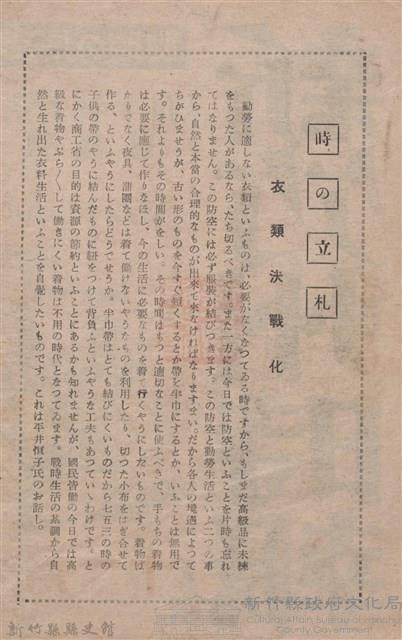 時の立札
衣類決戰化
勤勞に適しない衣類といふものは、必要がなくなつてゐる時ですから、もしまだ高級品に未練
をもつた人があるなら、たち切るべきです。また一方には今日では防空といふことを片時も忘れ
てはなりません。この防空には必ず服裝が結びつきます。この防空と勤勞生活といふ二つの事
から、自然と本當の合理的なものが出來て來なければなりますまい。だから各人の境遇によつて
ちがひませうが、古い形のものを今すぐ短くするとか帶を半巾にするとか、いふことは無用で
す。それよりもその時間がをしい。その時間はもつと適切なことに使ふべきで、手もちの着物
は必要に應じて作りなほし、今の生活に必要なものを着て行くやうにしたいものです。着物ば
かりでなく夜具、蒲團などは着て働けないやうなものを利用したり、切つた小布をはぎ合せて
作る、といふやうにしたらどうでせうか。半巾帶はとても結びにくいものだから七五三の時の
子供の帶のやうに結んだものに紐をつけて背負ふといふやうな工夫もあつていゝわけです。と
にかく商工省の目的は資源の節約といふことにあるかも知れませんが、國民皆働の今日では高
級な着物やぶら〱して働きにくい着物は不用の時代となつてゐます。戰時生活の基調から自
然と生れ出た衣料生活といふことを自覺したいものです。これは平井恒子氏のお話し。
新竹縣縣史館
新竹縣政府文化局
Cultural Affairs Bureau of Hsinchu
County Government